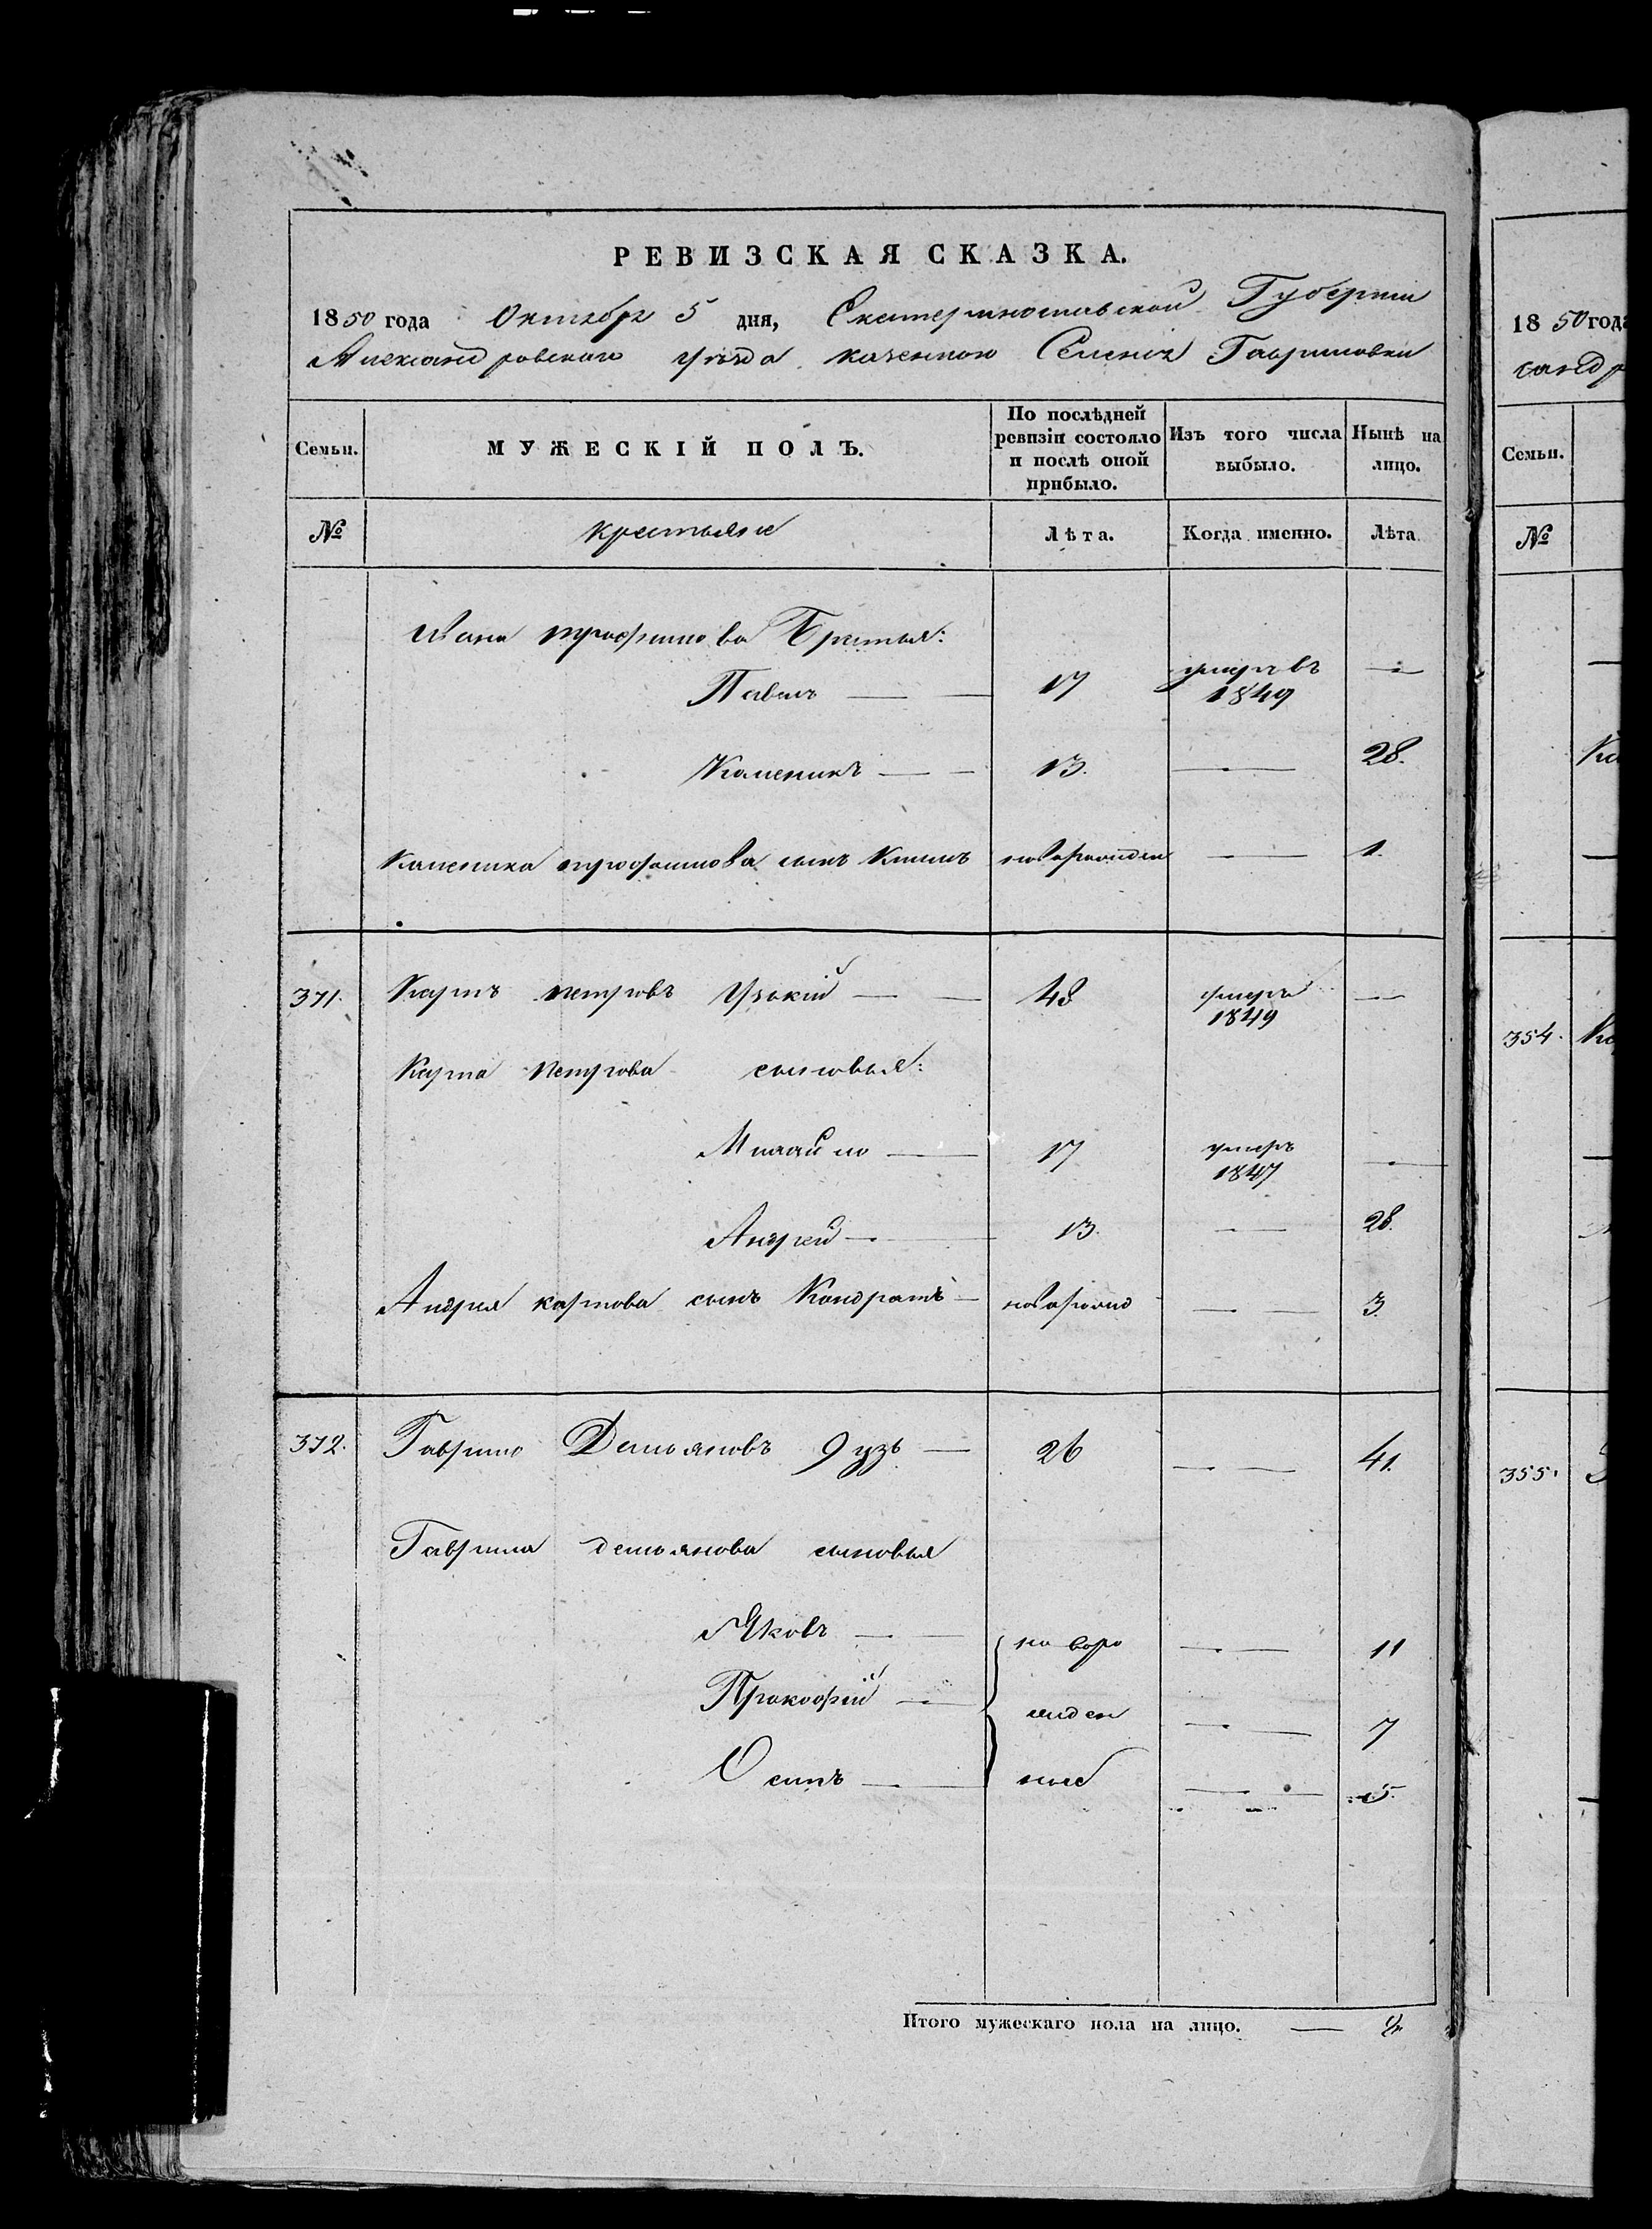 РЕВИЗСКАЯ СКАЗКА.
1850 года Октябр 5 дня, Екатеринославской Губернии
Александровского уѣзда казенного Селенія Гавриловки
Семьи. МУЖЕСКІЙ ПОЛЪ. По послѣдней ревизіи состояло и послѣ оной прибыло. Изъ того числа выбыло. Нынѣ на лицо.
№ крестьяне Лѣта. Когда именно. Лѣта
Ивана трофимова Братья:
Павелъ — — 17 умеръ въ 1849 —
Каленикъ — — 13. — 28.
Каленика трофимова сынъ новорожден — 1.
371. Карпъ петровъ — — 48 умеръ 1849 —
Карпа петрова сыновья:
Михайло — 17 умеръ 1847 —
Андрей — 13. — 28.
Андрея карпова сынъ Кондратъ — новорожд — 3.
372. Гаврило Демьяновъ — 26 — 41.
Гаврила демьянова сыновья
Яковъ — новоро — 11
Прокофій — жден — 7
Осипъ — ные — 5.
Итого мужескаго пола на лицо. —
18 50 года
санд
Семьи.
№
354.
355.